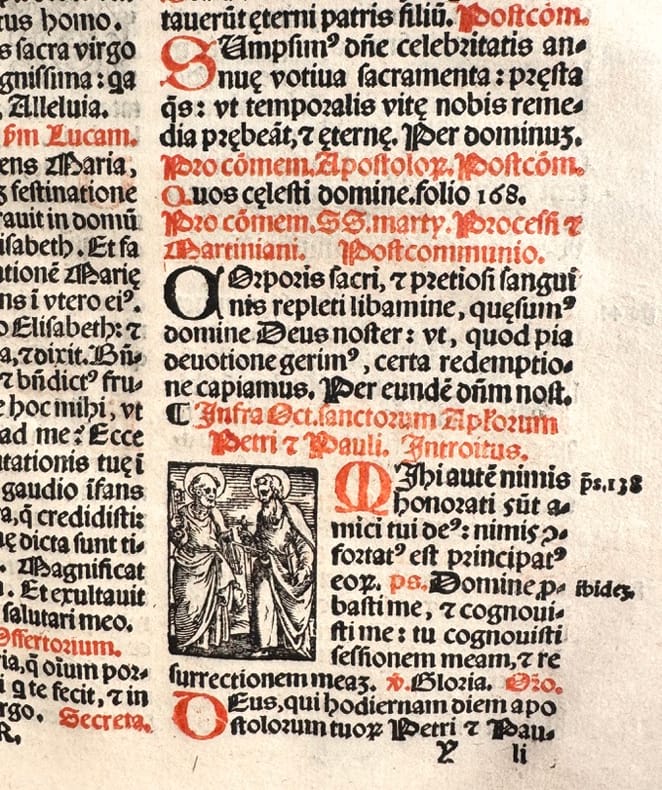 tus homo.
s sacra virgo
gnissima : qa
, Alleluia.
s̄m Lucam.
ens Maria,
ʒ festinatione
rauit in domū
isabeth. Et fa
utionē Marię
ns ī vtero eiꝰ.
o Elisabeth: ⁊
a, ⁊ dixit. Bñ-
⁊ bñdictꝰ fru-
e hoc mihi, vt
ad me? Ecce
utationis tuę ī
gaudio īfans
a, q̄ credidisti:
ę dicta sunt ti-
. Magnificat
. Et exultauit
salutari meo.
Offertorium.
ria, q̄ oīum por-
i q te fecit, ⁊ in
rgo. Secreta.
R,
tauerūt ęterni patris filiū. Postcōm.
SUmpsimꝰ dñe celebritatis an-
nuę votiua sacramenta : pręsta
q̄s : vt temporalis vitę nobis reme-
dia prębeāt, ⁊ ęternę. Per dominuʒ.
Pro cōmem. Apostoloꝝ. Postcōm.
Quos cęlesti domine. folio 168.
Pro cōmem. SS. marty. Processi ⁊
Martiniani. Postcommunio.
COrporis sacri, ⁊ pretiosi sangui
nis repleti libamine, quęsumꝰ
domine Deus noster : vt, quod pia
deuotione gerimꝰ, certa redemptio-
ne capiamus. Per eundē dñm nost.
¶ Infra Oct. sanctorum Aplorum
Petri ⁊ Pauli. Introitus.
MIhi autē nimis ps. 138
honorati sūt a-
mici tui deꝰ: nimis ꝯ-
fortatꝰ est principatꝰ
eoꝝ. ps. Domine ꝓ- ibideʒ.
basti me, ⁊ cognoui-
sti me : tu cognouisti
sessionem meam, ⁊ re
surrectionem meaʒ. ℣. Gloria. Orō.
DEus, qui hodiernam diem apo
stolorum tuoꝝ Petri ⁊ Pau-
Y li